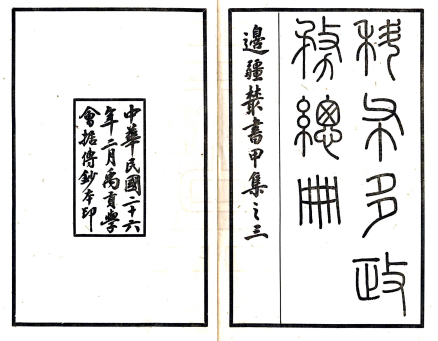 科布多政
務總冊
邊疆叢書甲集之三
中華民國二十六
年二月禹貢學
會据傳鈔本印